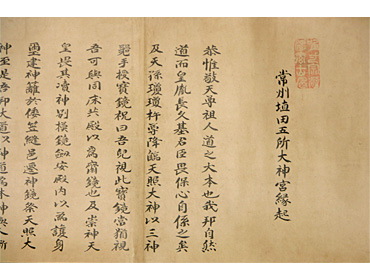 常州埴田五所大神宮縁起
恭惟敬天尊祖人道之大本也我邦自然
道而皇胤長久基君臣畏保心自係之矣
及天孫瓊瓊杵尊降臨天照大神以三神
器手授寶鏡祝曰吾兒視此寶鏡當猶視
吾可與同床共殿以為齋鏡也及崇神天
皇畏其瀆神別模鏡劔安殿内以為護身
璽建神籬於倭笠縫邑遷神鏡祭天照大
神至是吾邦大道以神道為本神